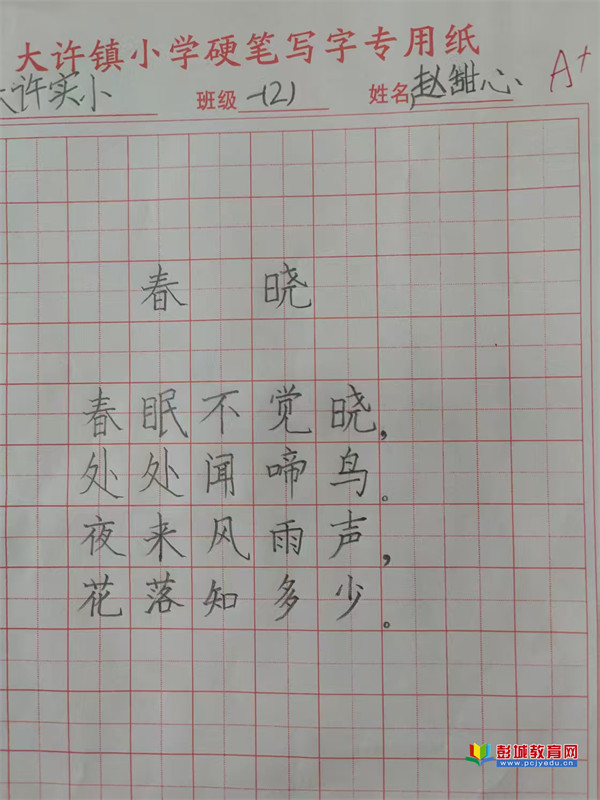 大许镇小学硬笔写字专用纸
大许实小 班级 一(2) 姓名 赵甜心 A+
春晓
春眠不觉晓，
处处闻啼鸟。
夜来风雨声，
花落知多少。
彭城教育网
www.pcjyedu.cn